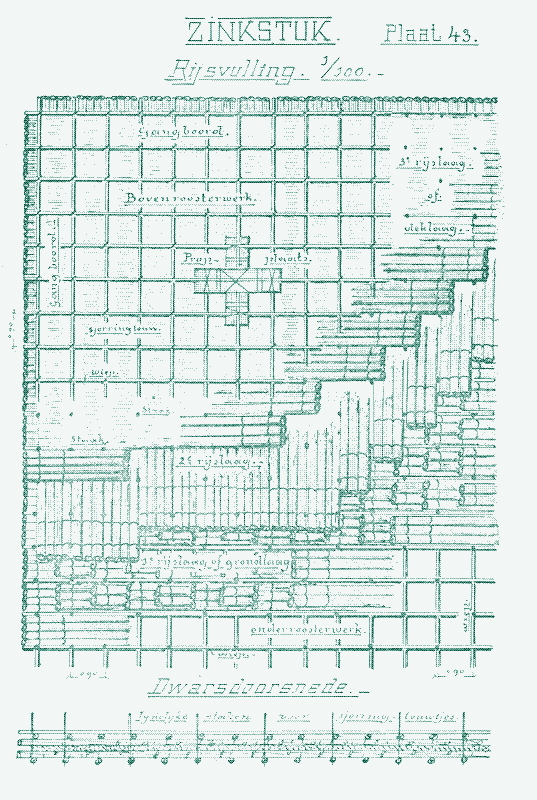 ZINKSTUK. Plaat 43.
Rijsvulling. 1/100.-
Gangboord.
3e rijslaag.
of
vleklaag.-
Bovenroosterwerk.
Gangboord.
Prap- plaats.
Sjorringtouw.
wiep.
Staak
Staak
2e rijslaag.-
1e rijslaag of grondlaag
onderroosterwerk.
wiep
wiep.-
0.90 0.90
Dwarsdoorsnede.-
Tijdelijke staken voor sjorring-touwtjes.